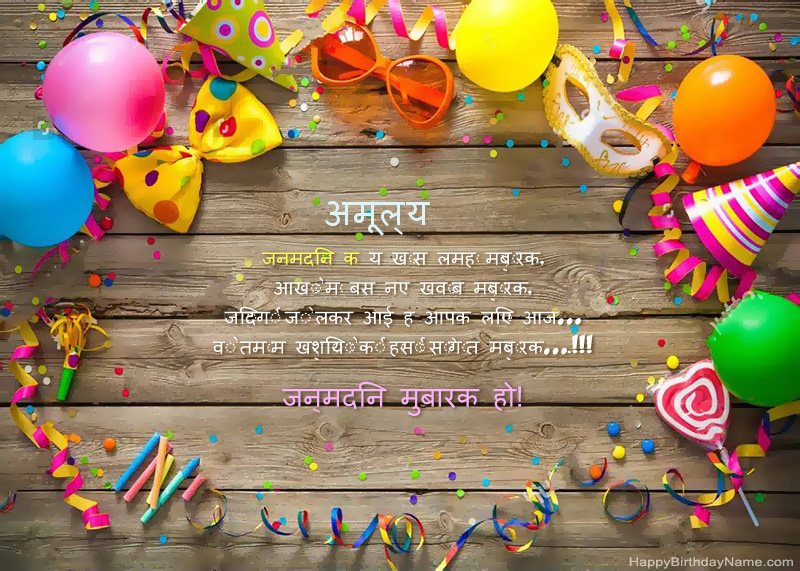 अमूल्य
जनमदिन क य खास लमहा मुबारक,
आखों में बसे नए ख्वाब मुबारक,
जिंदगी जो लेकर आई है आपके लिए आज...
वो तमाम खुशियों की हसीं सौगात मुबारक...!!!
जन्मदिन मुबारक हो!
HappyBirthdayName.com